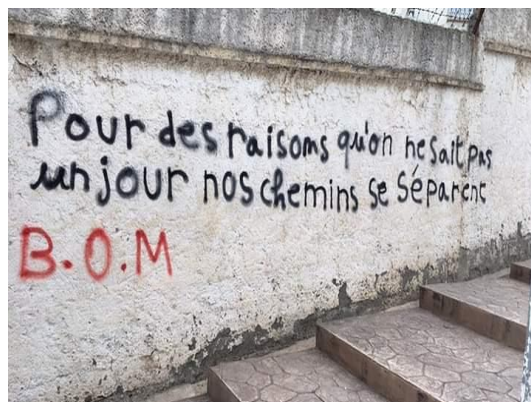 Pour des raisoms qu'on ne sait pas
un jour nos chemins se séparent
B.O.M